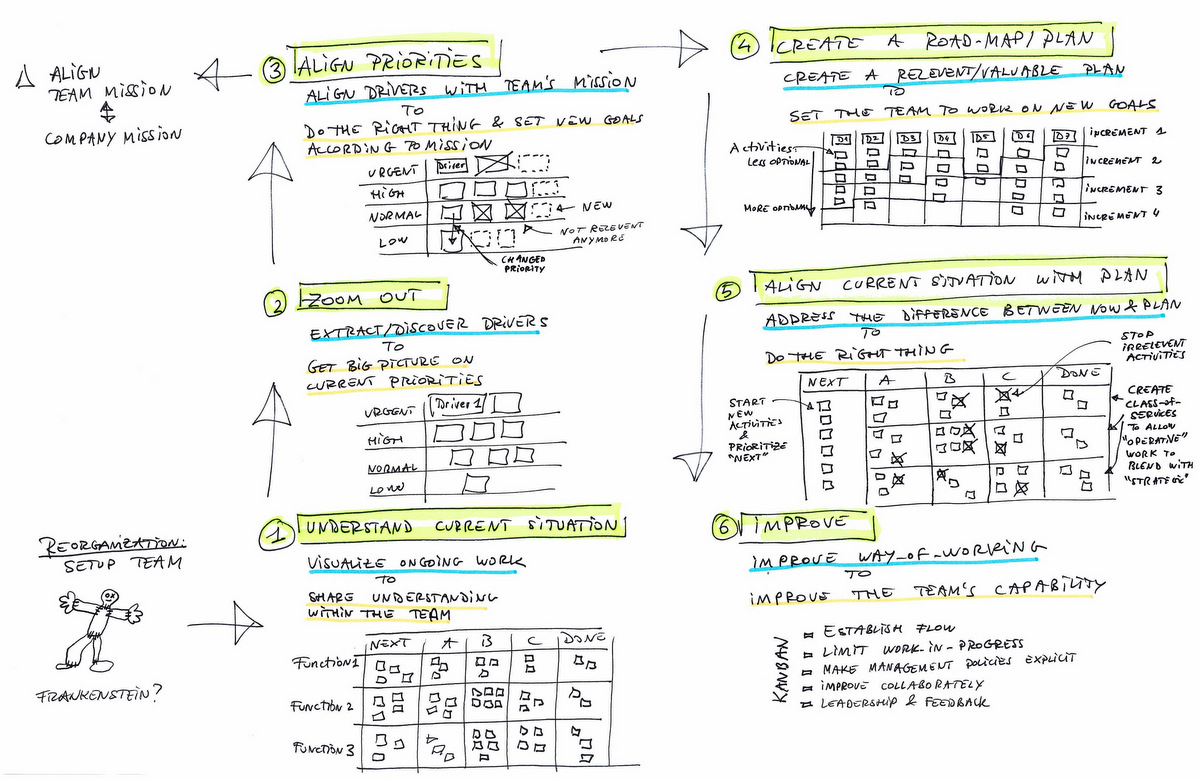 REORGANIZATION:
SETUP TEAM
FRANKENSTEIN?
1 UNDERSTAND CURRENT SITUATION
VISUALIZE ONGOING WORK
TO
SHARE UNDERSTANDING
WITHIN THE TEAM
NEXT A B C DONE
FUNCTION 1
FUNCTION 2
FUNCTION 3
2 ZOOM OUT
EXTRACT/DISCOVER DRIVERS
TO
GET BIG PICTURE ON
CURRENT PRIORITIES
URGENT Driver 1
HIGH
NORMAL
LOW
3 ALIGN PRIORITIES
ALIGN DRIVERS WITH TEAM'S MISSION
TO
DO THE RIGHT THING & SET NEW GOALS
ACCORDING TO MISSION
URGENT Driver
HIGH
NORMAL
NEW
LOW
NOT RELEVENT
ANYMORE
CHANGED
PRIORITY
ALIGN
TEAM MISSION
COMPANY MISSION
4 CREATE A ROAD-MAP/PLAN
CREATE A RELEVENT/VALUABLE PLAN
TO
SET THE TEAM TO WORK ON NEW GOALS
D1 D2 D3 D4 D5 D6 D7
INCREMENT 1
Activities:
LESS OPTIONAL
INCREMENT 2
INCREMENT 3
MORE OPTIONAL
INCREMENT 4
5 ALIGN CURRENT SITUATION WITH PLAN
ADDRESS THE DIFFERENCE BETWEEN NOW & PLAN
TO
DO THE RIGHT THING
STOP
IRRELEVENT
ACTIVITIES
NEXT A B C DONE
START
NEW
ACTIVITIES
&
PRIORITIZE
"NEXT"
CREATE
CLASS-OF-
SERVICES
TO ALLOW
"OPERATIVE"
WORK TO
BLEND WITH
6 IMPROVE
IMPROVE WAY-OF-WORKING
TO
IMPROVE THE TEAM'S CAPABILITY
KANBAN
ESTABLISH FLOW
LIMIT WORK-IN-PROGRESS
MAKE MANAGEMENT POLICIES EXPLICIT
IMPROVE COLLABORATELY
LEADERSHIP & FEEDBACK